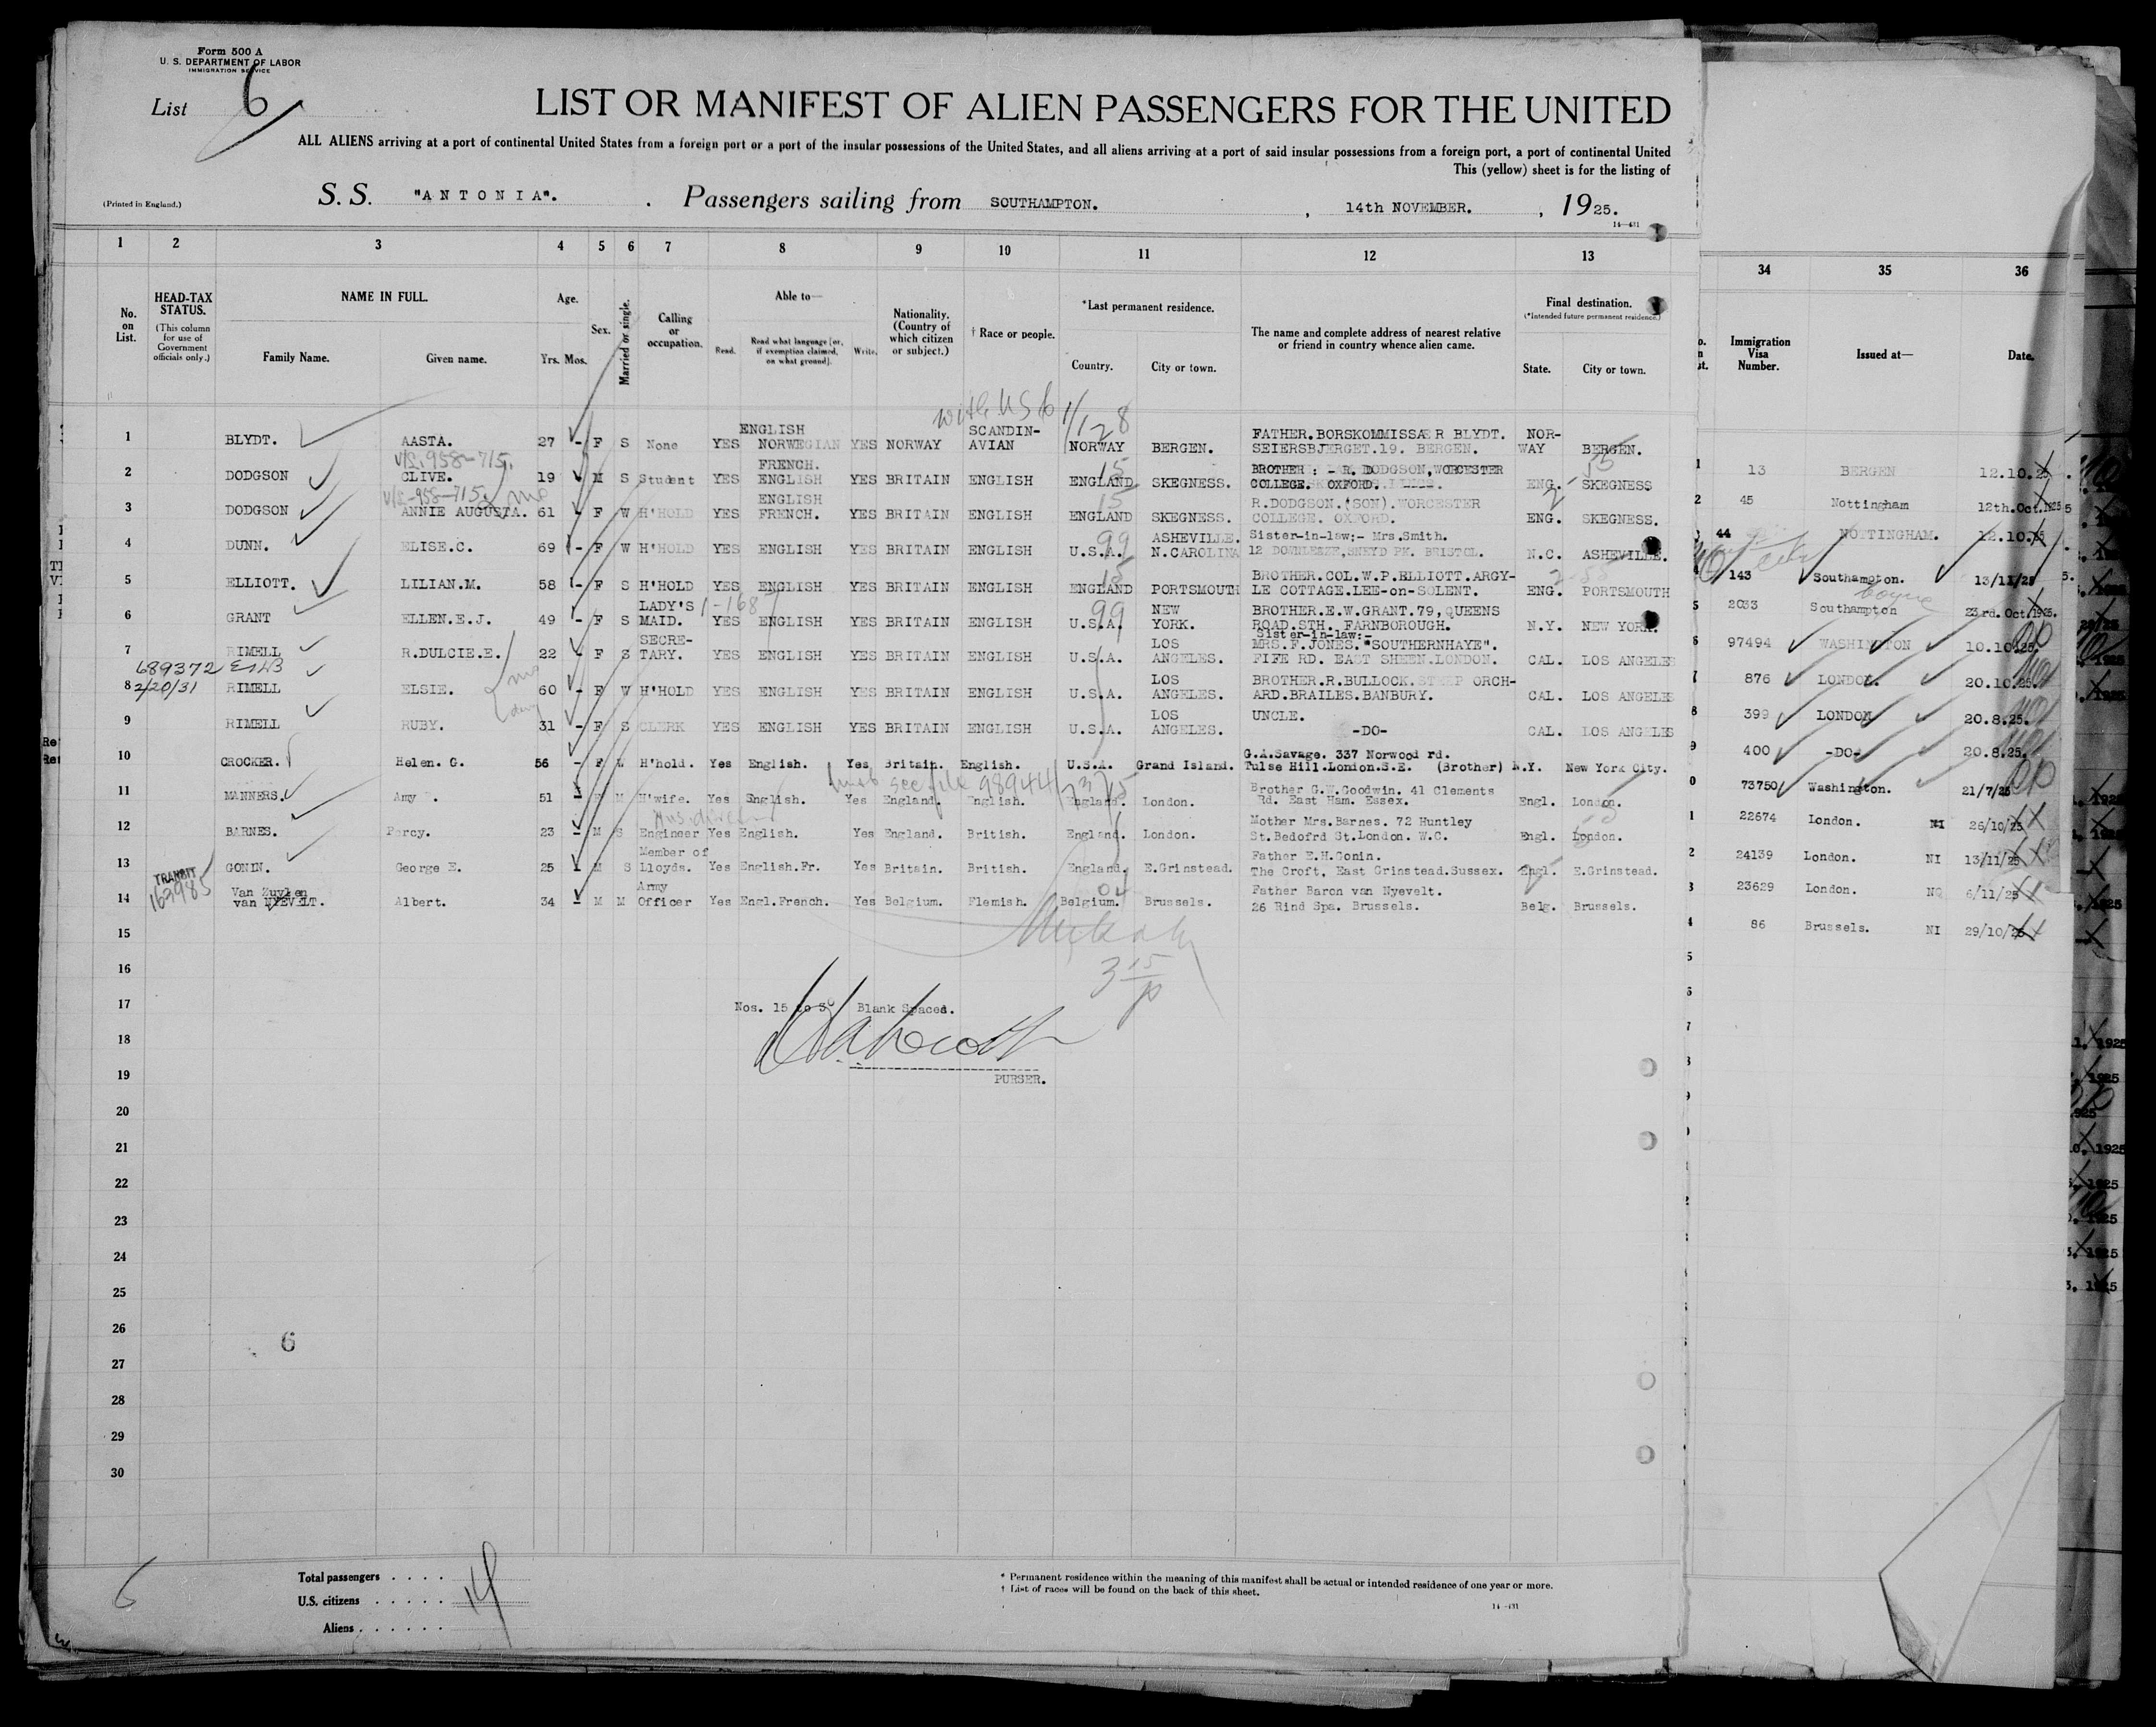 Form 500 A
U. S. DEPARTMENT OF LABOR
IMMIGRATION SERVICE
List 6
LIST OR MANIFEST OF ALIEN PASSENGERS FOR THE UNITED
ALL ALIENS arriving at a port of continental United States from a foreign port or a port of the insular possessions of the United States, and all aliens arriving at a port of said insular possessions from a foreign port, a port of continental United
This (yellow) sheet is for the listing of
(Printed in England.) S. S. "ANTONIA". Passengers sailing from SOUTHAMPTON. , 14th NOVEMBER. , 1925.
14—431
1 2 3 4 5 6 7 8 9 10 11 12 13 34 35 36
No. on List.
HEAD-TAX STATUS.
(This column for use of Government officials only.)
NAME IN FULL.
Family Name. Given name.
Age.
Yrs. Mos.
Sex.
Married or single.
Calling or occupation.
Able to—
Read. Read what language [or, if exemption claimed, on what ground]. Write.
Nationality. (Country of which citizen or subject.)
† Race or people.
*Last permanent residence.
Country. City or town.
The name and complete address of nearest relative or friend in country whence alien came.
Final destination.
(*Intended future permanent residence.)
State. City or town.
Immigration Visa Number.
Issued at—
Date.
1 BLYDT. AASTA. 27 - F S None YES ENGLISH NORWEGIAN YES NORWAY SCANDIN-AVIAN NORWAY BERGEN. FATHER.BORSKOMMISSAER BLYDT. SEIERSBJERGET.19. BERGEN. NOR-WAY BERGEN.
V/S.958-715.
2 DODGSON CLIVE. 19 - M S Student YES FRENCH. ENGLISH YES BRITAIN ENGLISH ENGLAND SKEGNESS. BROTHER : - R. DODGSON, WORCESTER COLLEGE. OXFORD. ENG. SKEGNESS
V/S-958-715
3 DODGSON ANNIE AUGUSTA. 61 - F W H'HOLD YES ENGLISH FRENCH. YES BRITAIN ENGLISH ENGLAND SKEGNESS. R.DODGSON.(SON).WORCESTER COLLEGE. OXFORD. ENG. SKEGNESS.
4 DUNN. ELISE.C. 69 - F W H'HOLD YES ENGLISH YES BRITAIN ENGLISH U.S.A. ASHEVILLE. N.CAROLINA Sister-in-law:- Mrs.Smith. SNEYD PK. BRISTOL. N.C. ASHEVILLE.
5 ELLIOTT. LILIAN.M. 58 - F S H'HOLD YES ENGLISH YES BRITAIN ENGLISH ENGLAND PORTSMOUTH BROTHER.COL.W.P.ELLIOTT.ARGY-LE COTTAGE.LEE-on-SOLENT. ENG. PORTSMOUTH
6 GRANT ELLEN.E.J. 49 - F S LADY'S MAID. YES ENGLISH YES BRITAIN ENGLISH U.S.A. NEW YORK. BROTHER.E.W.GRANT.79,QUEENS ROAD.STH. FARNBOROUGH. N.Y. NEW YORK.
7 RIMELL R.DULCIE.E. 22 - F S SECRE-TARY. YES ENGLISH YES BRITAIN ENGLISH U.S.A. LOS ANGELES. Sister-in-law:- MRS.F.JONES."SOUTHERNHAYE". FIFE RD. EAST SHEEN.LONDON. CAL. LOS ANGELES
689372
2/20/31
8 RIMELL ELSIE. 60 - F W H'HOLD YES ENGLISH YES BRITAIN ENGLISH U.S.A. LOS ANGELES. BROTHER.R.BULLOCK.STEEP ORCH-ARD.BRAILES.BANBURY. CAL. LOS ANGELES
9 RIMELL RUBY. 31 - F S CLERK YES ENGLISH YES BRITAIN ENGLISH U.S.A. LOS ANGELES. UNCLE. -DO- CAL. LOS ANGELES
10 CROCKER. Helen. G. 56 - F W H'hold. Yes English. Yes Britain. English. U.S.A. Grand Island. G.A.Savage. 337 Norwood rd. Tulse Hill.London.S.E. (Brother) N.Y. New York City.
see file 98944/
11 MANNERS. Amy 51 - F M H'wife. Yes English. Yes England. English. England. London. Brother G.W.Goodwin. 41 Clements Rd. East Ham. Essex. Engl. London.
12 BARNES. Percy. 23 - M S Engineer Yes English. Yes England. British. England. London. Mother Mrs.Barnes. 72 Huntley St.Bedofrd St.London. W.C. Engl. London.
13 GONIN. George E. 25 - M S Member of Lloyds. Yes English.Fr. Yes Britain. British. England. E.Grinstead. Father E.H.Gonin. The Croft, East Grinstead.Sussex. Engl. E.Grinstead.
TRANSIT
163985
14 Van Zuylen van NYEVELT. Albert. 34 - M M Army Officer Yes Engl.French. Yes Belgium. Flemish. Belgium. Brussels. Father Baron van Nyevelt. 26 Rind Spa. Brussels. Belg. Brussels.
15
16
17 Nos. 15 to 30 Blank Spaces.
18
19 PURSER.
20
21
22
23
24
25
26
6
27
28
29
30
13 BERGEN 12.10.25
45 Nottingham 12th.Oct.1925
44 NOTTINGHAM. 12.10.25
143 Southampton. 13/11/25
2033 Southampton 23rd. Oct.1925.
97494 WASHINGTON 10.10.25.
876 LONDON. 20.10.25.
399 LONDON 20.8.25.
400 -DO- 20.8.25.
73750 Washington. 21/7/25
22674 London. NI 26/10/25
24139 London. NI 13/11/25
23629 London. NQ 6/11/25
86 Brussels. NI 29/10/25
Total passengers . . . .
U.S. citizens . . . . .
Aliens . . . . . .
14
6
* Permanent residence within the meaning of this manifest shall be actual or intended residence of one year or more.
† List of races will be found on the back of this sheet.
14—431